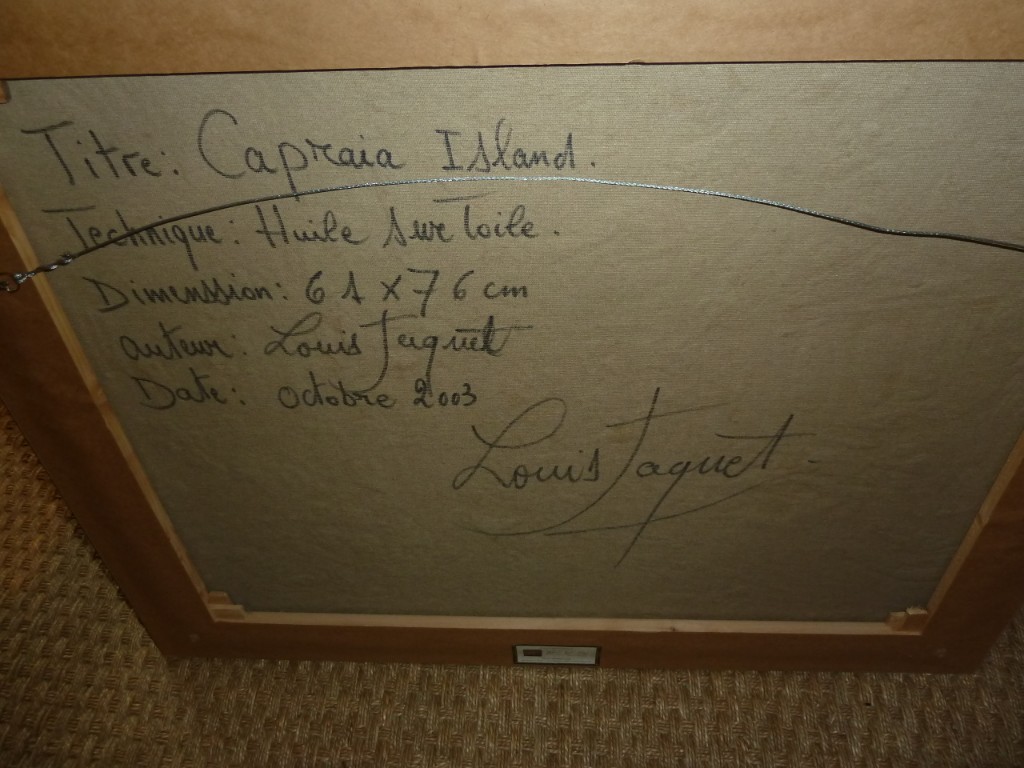 Titre: Capraia Island.
Technique: Huile sur Toile.
Dimenssion: 61 x 76 cm
auteur: Louis Jaquet
Date: octobre 2003
Louis Jaquet